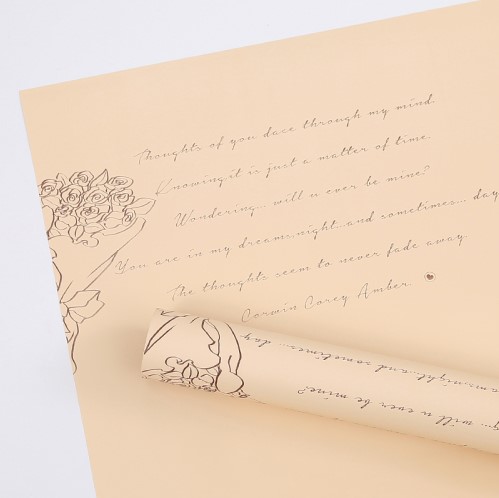 Thoughts of you daze through my mind
Knowing it is just a matter of time
Wondering... will u ever be mine?
You are in my dreams.night...and sometimes... day
The thoughts seem to never fade away
Corwin Corey Amber
ams.night...and sometimes... day
will u ever be mine?